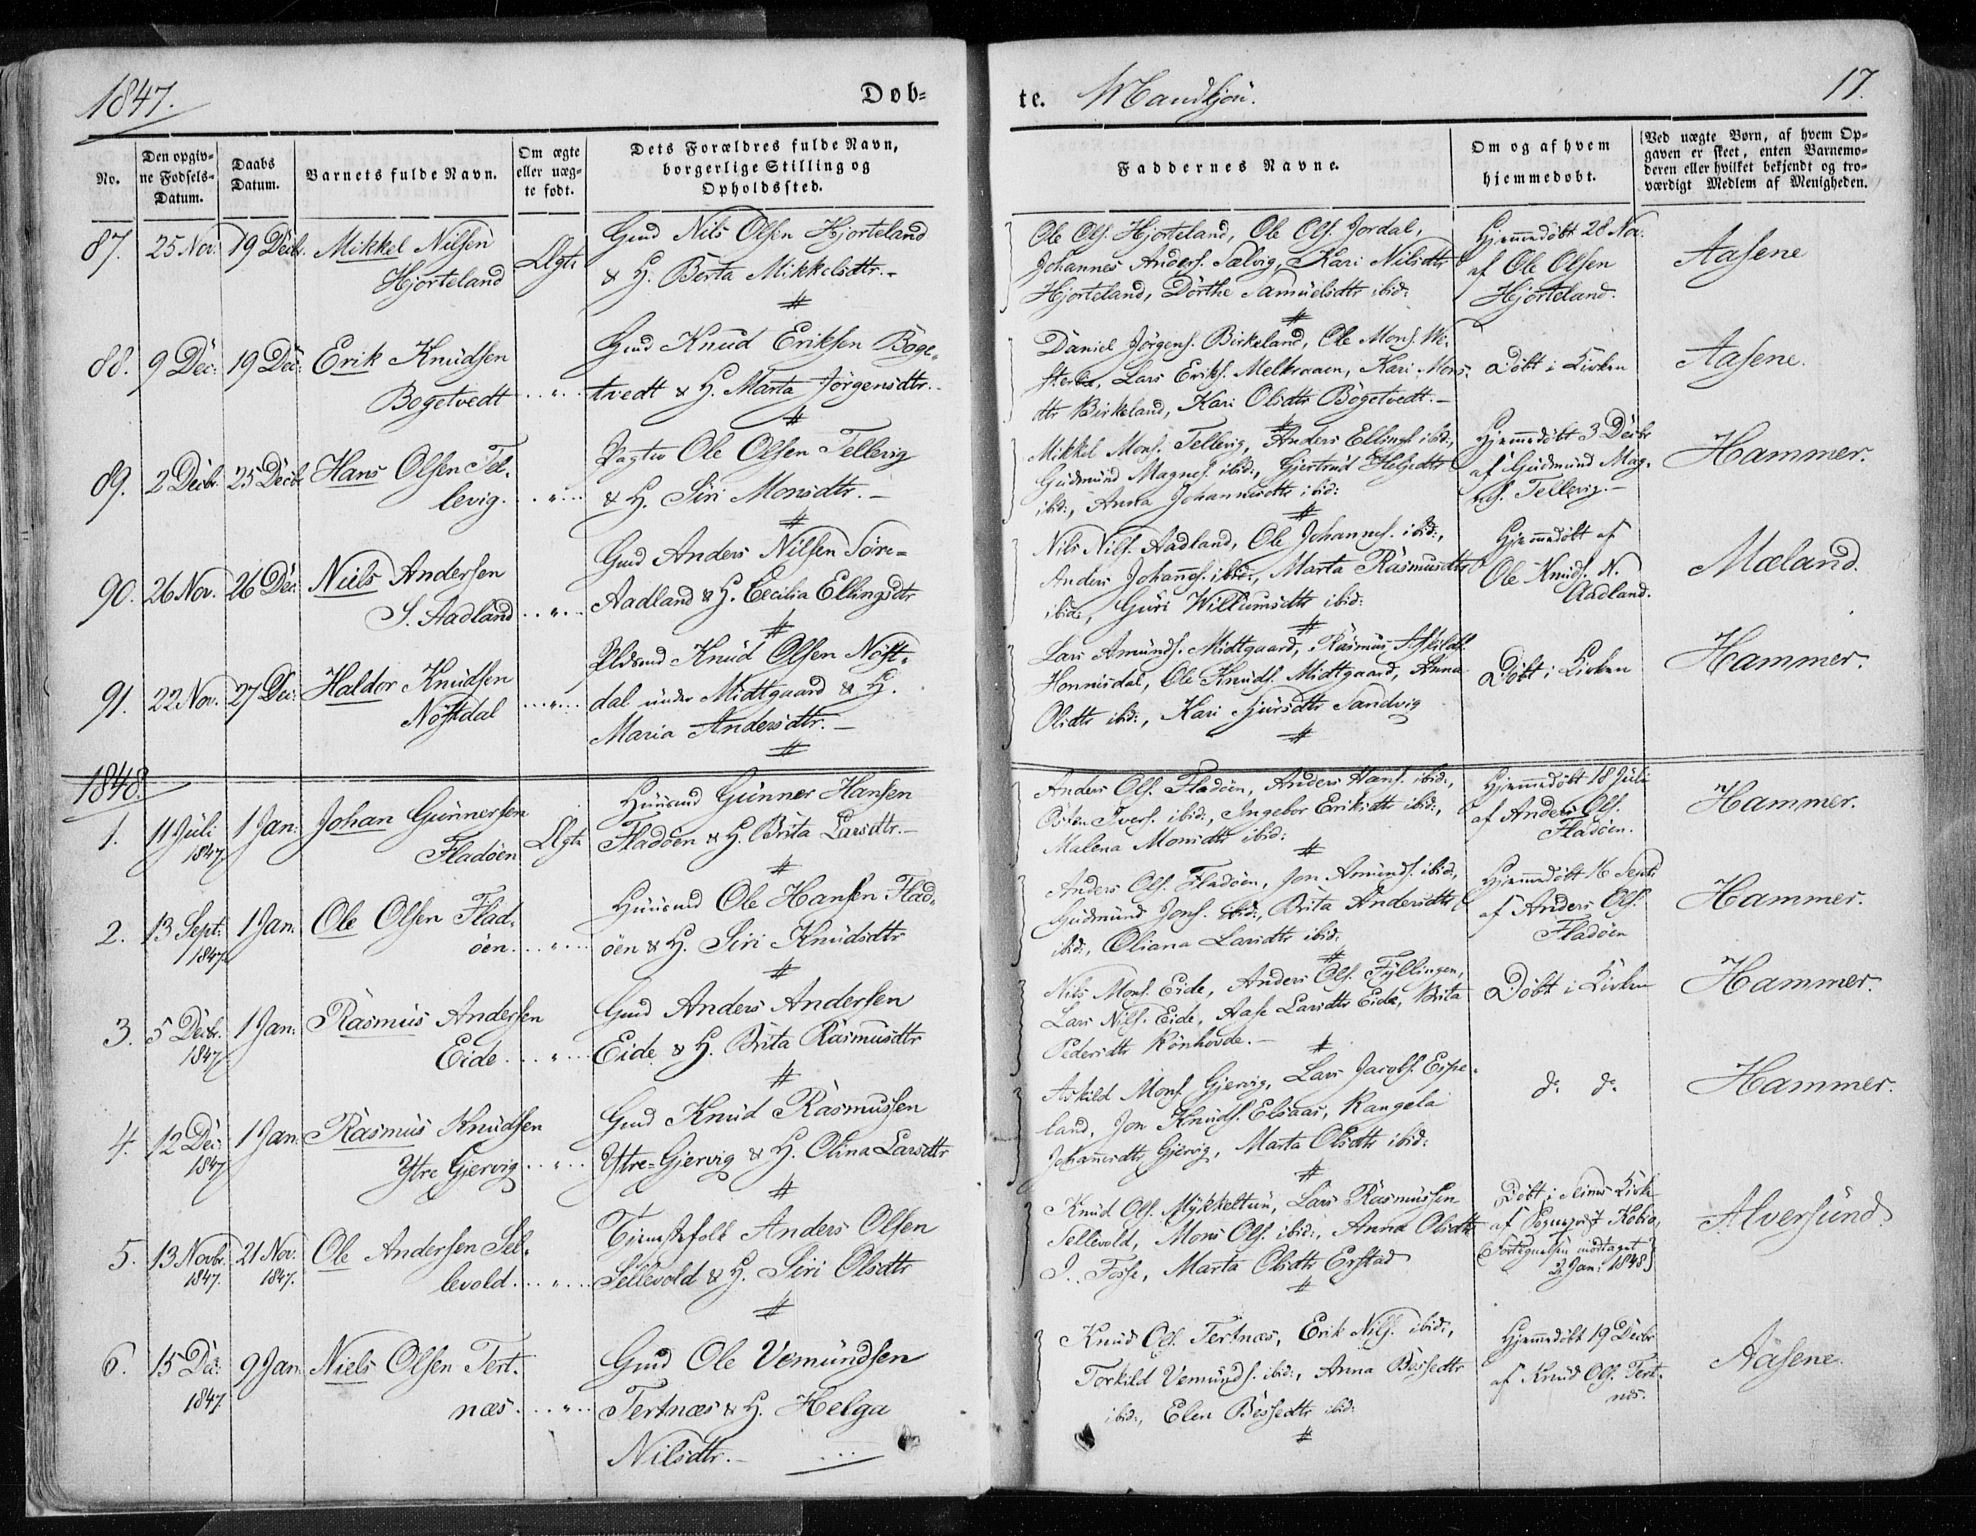 1847.
Døb-
te. Mandkjön.
17.
No.
Den opgiv-
ne Fødsels-
Datum.
Daabs
Datum.
Barnets fulde Navn.
Om ægte
eller uæg-
te født.
Dets Forældres fulde Navn,
borgerlige Stilling og
Opholdssted.
Faddernes Navne.
Om og af hvem
hjemmedøbt.
(Ved uægte Børn, af hvem Op-
gaven er skeet, enten Barnemo-
deren eller hvilket bekjendt og tro-
værdigt Medlem af Menigheden.
87. 25 Nov. 19 Decbr. Mikkel Nilsen
Hjorteland
Ægte
Gmd Nils Olsen Hjorteland
& H. Berta Mikkelsdtr.-
Ole Ols. Hjorteland, Ole Ols. Jordal,
Johannes Anders. Sælvig, Kari Nilsdtr
Hjorteland, Dörthe Samuelsdtr ibid:
Hjemmedöbt 28 Nov.
af Ole Olsen
Hjorteland.
Aasene
88. 9 Dec: 19 Dec: Erik Knudsen
Bogetvedt
Gmd Knud Eriksen Böge-
tvedt & H. Marta Jörgensdtr.-
Daniel Jörgens. Birkeland, Ole Mons.
Lars Eriks. Melkraaen, Kari Mons-
dtr Birkeland, Kari Olsdtr Bögetvedt.-
Döbt i Kirken
Aasene.
89. 2 Decbr. 25 Decbr Hans Olsen Tel-
levig.
Ole Olsen Tellevig
& H. Siri Monsdtr.-
Mikkel Mons. Tellevig, Anders Ellings ibid:,
Gudmund Magnes. ibid:, Gjertrud Heljedtr
ibid:, Anna Johannesdtr ibid:
Hjemmedöbt 3 Decbr
af Gudmund Mag-
nes. Tellevig.-
Hammer.
90. 26 Nov. 26 Dec: Niels Andersen
S. Aadland
Gmd Anders Nilsen Söre-
Aadland & H. Cecilia Ellingsdtr
Nils Nils. Aadland, Ole Johannes. ibid:,
Anders Johannes. ibid:, Marta Rasmusdtr
ibid:, Guri Willumsdtr ibid:
Hjemmedöbt af
Ole Knuds. N.
Aadland.
Mæland.
91. 22 Nov. 27 Dec: Haldor Knudsen
Nöstdal
Pldsmd Knud Olsen Nöst-
dal under Midtgaard & H.
Maria Andersdtr.-
Lars Amunds. Midtgaard, Rasmus
Honnisdal, Ole Knuds. Midtgaard, Anna
Olsdtr ibid:, Kari Sjursdtr Sandvig
Döbt i Kirken
Hammer.
1848.
1. 11 Juli
1847
1 Jan: Johan Gunnersen
Fladöen
Ægte
Huusmd Gunner Hansen
Fladöen & H. Brita Larsdtr.-
Anders Ols. Fladöen, Anders Hans. ibid:,
Östen Ivers. ibid:, Ingebor Eriksdtr ibid:,
Malena Monsdtr ibid:
Hjemmedöbt 18 Juli
af Anders Ols.
Fladöen.
Hammer.
2. 13 Sept:
1847.
1 Jan. Ole Olsen Flad-
öen.
Huusmd Ole Hansen Flad-
öen & H. Siri Knudsdtr
Anders Ols. Fladöen, Jon Amunds. ibid:,
Gudmund Jons. ibid:, Brita Andersdtr
ibid:, Oliana Larsdtr ibid:
Hjemmedöbt 16 Sept:
af Anders Ols.
Fladöen
Hammer.
3. 5 Decbr.
1847.
1 Jan: Rasmus Andersen
Eide.
Gmd Anders Andersen
Eide & H. Brita Rasmusdtr
Nils Mons. Eide, Anders Ols. Fyllingen,
Lars Nils. Eide, Aase Larsdtr Eide, Brita
Pedersdtr Rönhovde.-
Döbt i Kirken
Hammer.
4. 12 Dec:
1847
1 Jan: Rasmus Knudsen
Ytre Gjervig
Gmd Knud Rasmussen
Ytre-Gjervig & H. Olina Larsdtr
Askild Mons. Gjervig, Lars Jacobs. Espe-
land, Jon Knuds. Elsaas, Rangela
Johannesdtr Gjervig, Marta Olsdtr ibid:
do do
Hammer.
5. 13 Novbr.
1847.
21 Nov.
1847.
Ole Andersen Sel-
levold.
Tjenestefolk Anders Olsen
Sellevold & H. Siri Olsdtr
Knud Ols. Mykkeltun, Lars Rasmussen
Sellevold, Mons Ols. ibid:, Anna Olsdtr
Fosse, Marta Olsdtr Erstad
Döbt i Seims Kirke
af Sognepr.
(Fortegnelsen modtaget
2 Jan: 1848)
Alversund
6. 15 Dec:
1847.
9 Jan: Niels Olsen Tert-
næs.
Gmd Ole Vemundsen
Tertnæs & H. Helga
Nilsdtr.-
Knud Ols. Tertnæs, Erik Nils. ibid:,
Torkild Vemunds. ibid:, Anna Bessedtr
ibid:, Elen Bessedtr ibid:
Hjemmedöbt 19 Decbr
af Knud Ols. Tert-
næs.
Aasene.